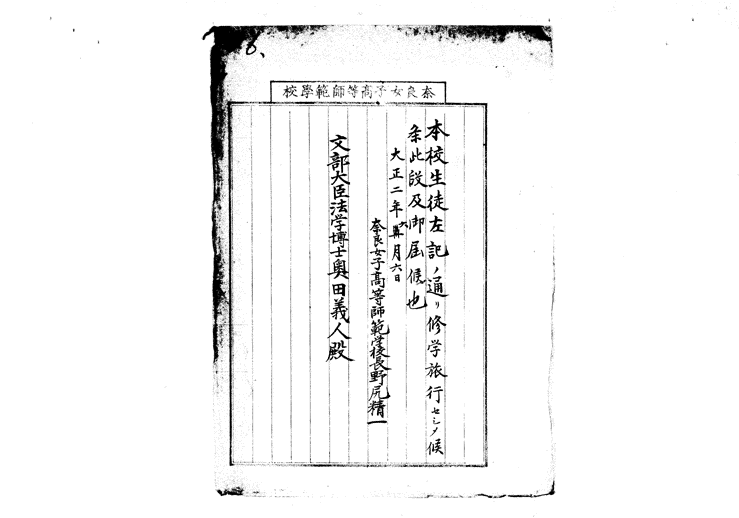 6、
奈良女子高等師範學校
本校生徒左記ノ通リ修学旅行セシメ候
条此段及御届候也
大正二年六月六日
奈良女子高等師範学校長野尻精一
文部大臣法学博士奥田義人殿